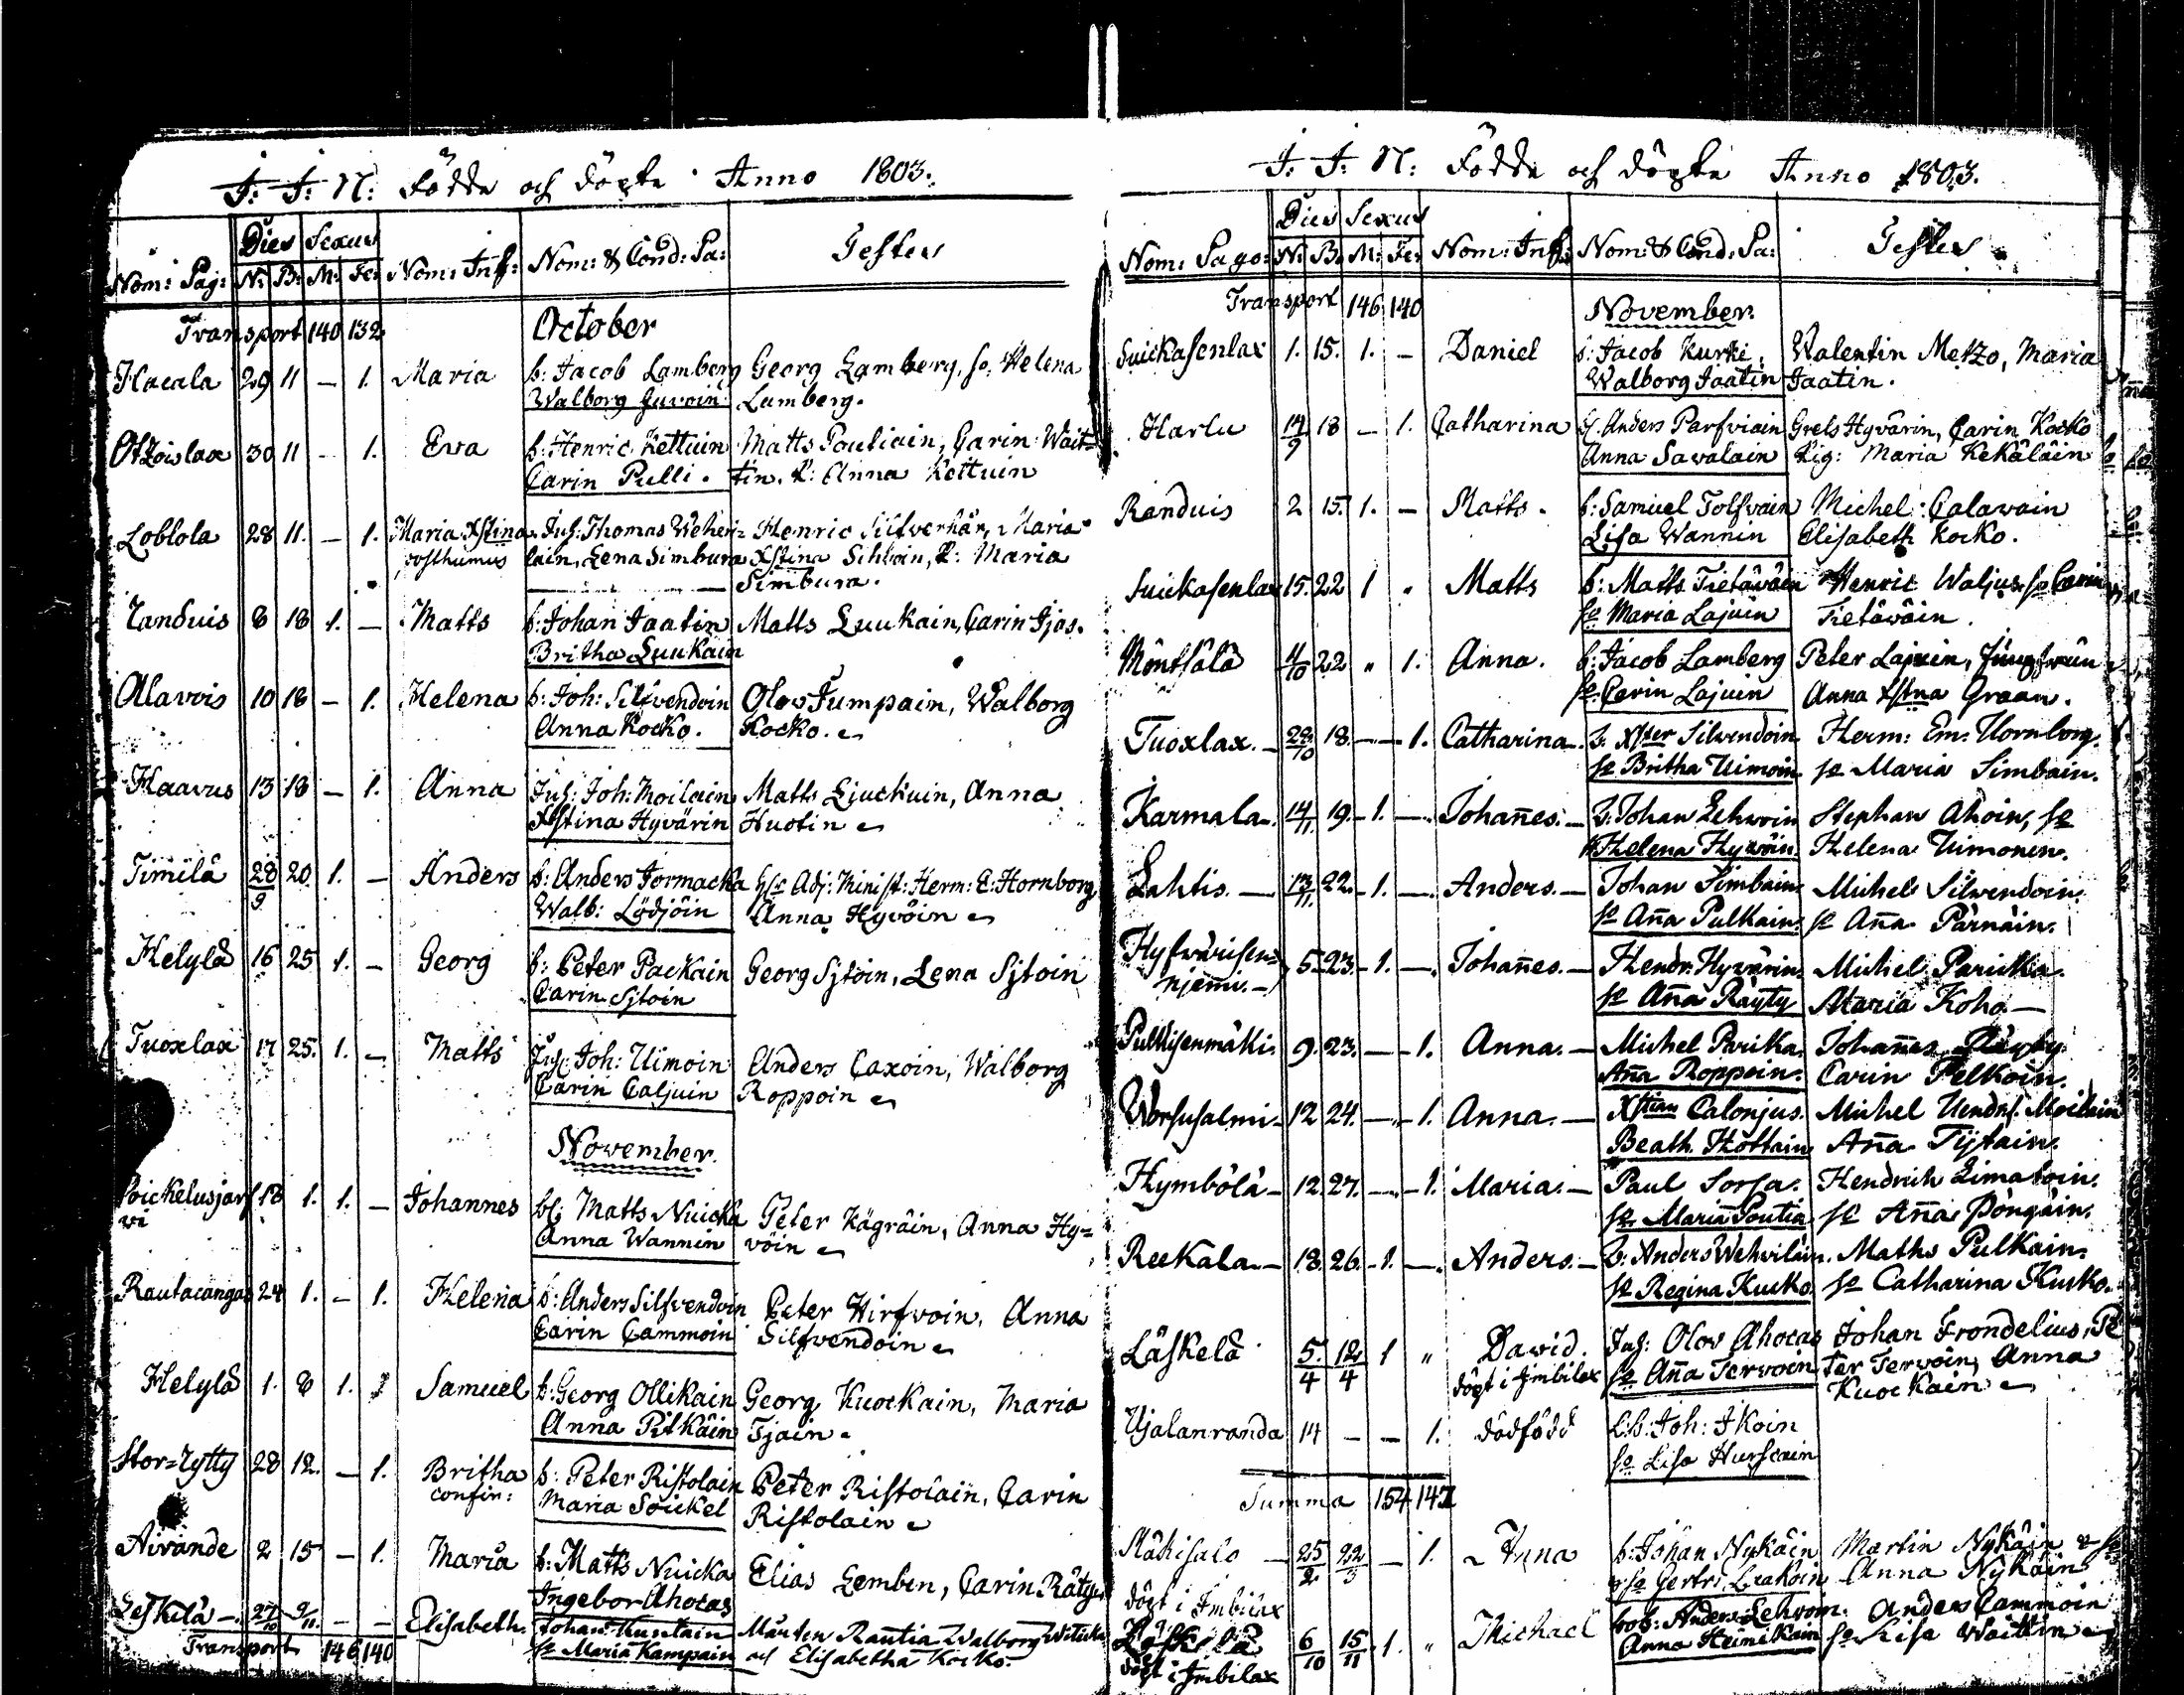 J. J. N: Födde och döpte Anno 1803.
Nom: Pag: Dies N: B: Sexus M: Fe: Nom: Inf: Nom: & Cond: Pa: Testes
Transport 140 132 October
Hacala 29 11 – 1. Maria b: Jacob Lamberg Georg Lamberg, so. Helena
Walborg Juvoin Lamberg.
Otzoislax 30 11 – 1. Eva b: Henric Kettuin Matts Poutiain, Carin Wait=
Carin Pulli. tin, P: Anna Kettuin
Loblola 28 11. – 1. Maria Xstina Inh: Thomas Weheri= Henric Silfverhär, Maria
posthumus lain, Lena Simbura Xstina Sihvoin, P: Maria
Simbura.
Randuis 8 18 1. – Matts b: Johan Jaatin Matts Luukain, Carin Ijäs.
Britha Luukain
Alavois 10 18 – 1. Helena b: Joh: Silfvendoin Olov Jumpain, Walborg
Anna Kocko. Kocko.
Haavus 13 18 – 1. Anna Inh: Joh: Moilain Matts Liuckuin, Anna
Xstina Hyvärin Huotin
Timilä 28/9 20 1. – Anders b: Anders Jormacka Adj: Minist: Herm: E: Hornborg,
Walb: Lödjöin Anna Hyvöin
Helylä 16 25 1. – Georg b: Peter Packain Georg Sjtoin, Lena Sjtoin
Carin Sjtoin
Tuoxlax 17 25. 1. – Matts Inh: Joh: Uimoin Anders Caxoin, Walborg
Carin Caljuin Roppoin
November.
Poickelusjarf 18 1. 1. – Johannes Matts Nuicka Peter Kägräin, Anna Hy=
vi Anna Wannin vöin
Rautacangas 24 1. – 1. Helena b: Anders Silfvendoin Peter Hirfvoin, Anna
Carin Cammoin Silfvendoin
Helylä 1. 8 1. Samuel b: Georg Ollikain Georg Kuockain, Maria
Anna Pitkäin Tjain.
Stor=Rytty 28 12. – 1. Britha b: Peter Ristolain Peter Ristolain, Carin
confir: Maria Soickel Ristolain
Airände 2 15 – 1. Maria b: Matts Nuicka Elias Lemben, Carin Räty
Ingebor Ahocas
Leskelä 27/10 9/11. – – Elisabeth. Johan Kuntain Mårten Rautia Walborg
Transport 146 140 so Maria Kampain och Elisabetha Kocko.
J. J. N: Födde och döpte Anno 1803.
Nom: Pago: Dies N: B. Sexus M: Fe: Nom: Inf: Nom: & Cond: Pa: Testes
Transport 146 140 November.
Suickasenlax 1. 15. 1. – Daniel b: Jacob Kurki, Walentin Metzo, Maria
Walborg Jaatin Jaatin.
Harlu 14/9 18 – 1. Catharina Anders Parfviain Grels Hyvärin, Carin Kocko
Anna Savalain Pig: Maria Kekäläin
Randuis 2 15. 1. – Matts. b: Samuel Tolfvain Michel Calavain
Lisa Wannin Elisabeth Kocko.
Suickasenlax 15. 22 1 " Matts b: Matts Tietäväin Henric Waljus, so Carin
so Maria Lajuin Tietäväin.
Möntsälä 4/10 22 " 1. Anna. b: Jacob Lamberg Peter Lajuin, Jungfrun
so. Carin Lajuin Anna Xstna Graan.
Tuoxlax. – 28/10 18. – 1. Catharina. b: Xster Silvendoin. Herm: Em: Hornborg.
so Britha Uimoin. so Maria Simbain.
Karmala. 14/11 19. 1. – Johañes. – b: Johan Lehvoin Stephan Ahoin, so
Helena Hyvöin. Helena Uimonen.
Lahtis. – 13/11. 22. 1. – Anders. – Johan Simbain Michel Silvendoin.
so Aña Pulkain. so Aña Pärnäin.
Hyfvärisen= 5. 23. 1. – Johañes. – Hendr. Hyvärin. Michel Paricka.
njemi. – so Aña Räyty Maria Koho. –
Pulkisenmäki. 9. 23. – 1. Anna. – Michel Parika. Johañes Räyty
Aña Roppoin. Carin Pelkoin.
Worsusalmi 12 24. – 1. Anna. – Xstian Calonjus. Michel Hendrs. Moilain
Beath. Hottain Aña Tijtain.
Hymbölä – 12. 27. – 1. Maria. – Paul Sorsa. Hendrich Limatoin.
so. Maria Poutia so Aña Pöngäin.
Reekala. – 18. 26. 1. – Anders. – b: Anders Wehviläin. Maths Pulkain.
so Regina Kucko. so Catharina Kucko.
Läskelä 5/4 12/4 1 " David. Inh: Olov Ahocas Johan Frondelius, Pe
döpt i Imbilax so Aña Tervoin ter Tervoin, Anna
Kuockain
Ujalanranda 14 – – 1. dödfödd L:b: Joh: Ikoin
so Lisa Hurscain
Summa 154 147
Mäkisalo – 25/2 22/3 – 1. Anna b: Johan Nykäin Martin Nykäin & so
döpt i Imbilax so Gertr: Leskoin Anna Nykäin
Läskelä 6/10 15/11 1. " Michael Anders Lehvom. Anders Cammoin
döpt i Imbilax Anna Heinikain so Lisa Waittin